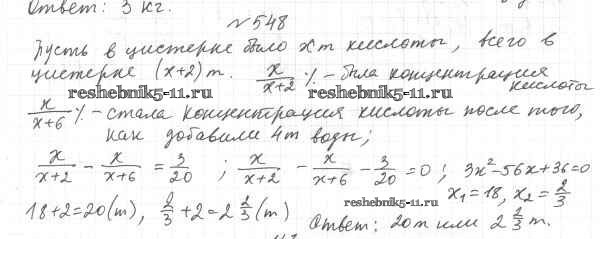 Ответ: 3 кг.
№548
Пусть в цистерне было x т кислоты, всего в
цистерне (x+2) т. x/(x+2) % – была концентрация
кислоты
reshebnik5-11.ru reshebnik5-11.ru
x/(x+6) % – стала концентрация кислоты после того,
как добавили 4т воды;
x/(x+2) – x/(x+6) = 3/20 ; x/(x+2) – x/(x+6) – 3/20 = 0 ; 3x²–56x+36=0
x₁=18, x₂=2/3
18+2=20(т), 2/3+2=2 2/3(т)
reshebnik5-11.ru
Ответ: 20т или 2 2/3 т.